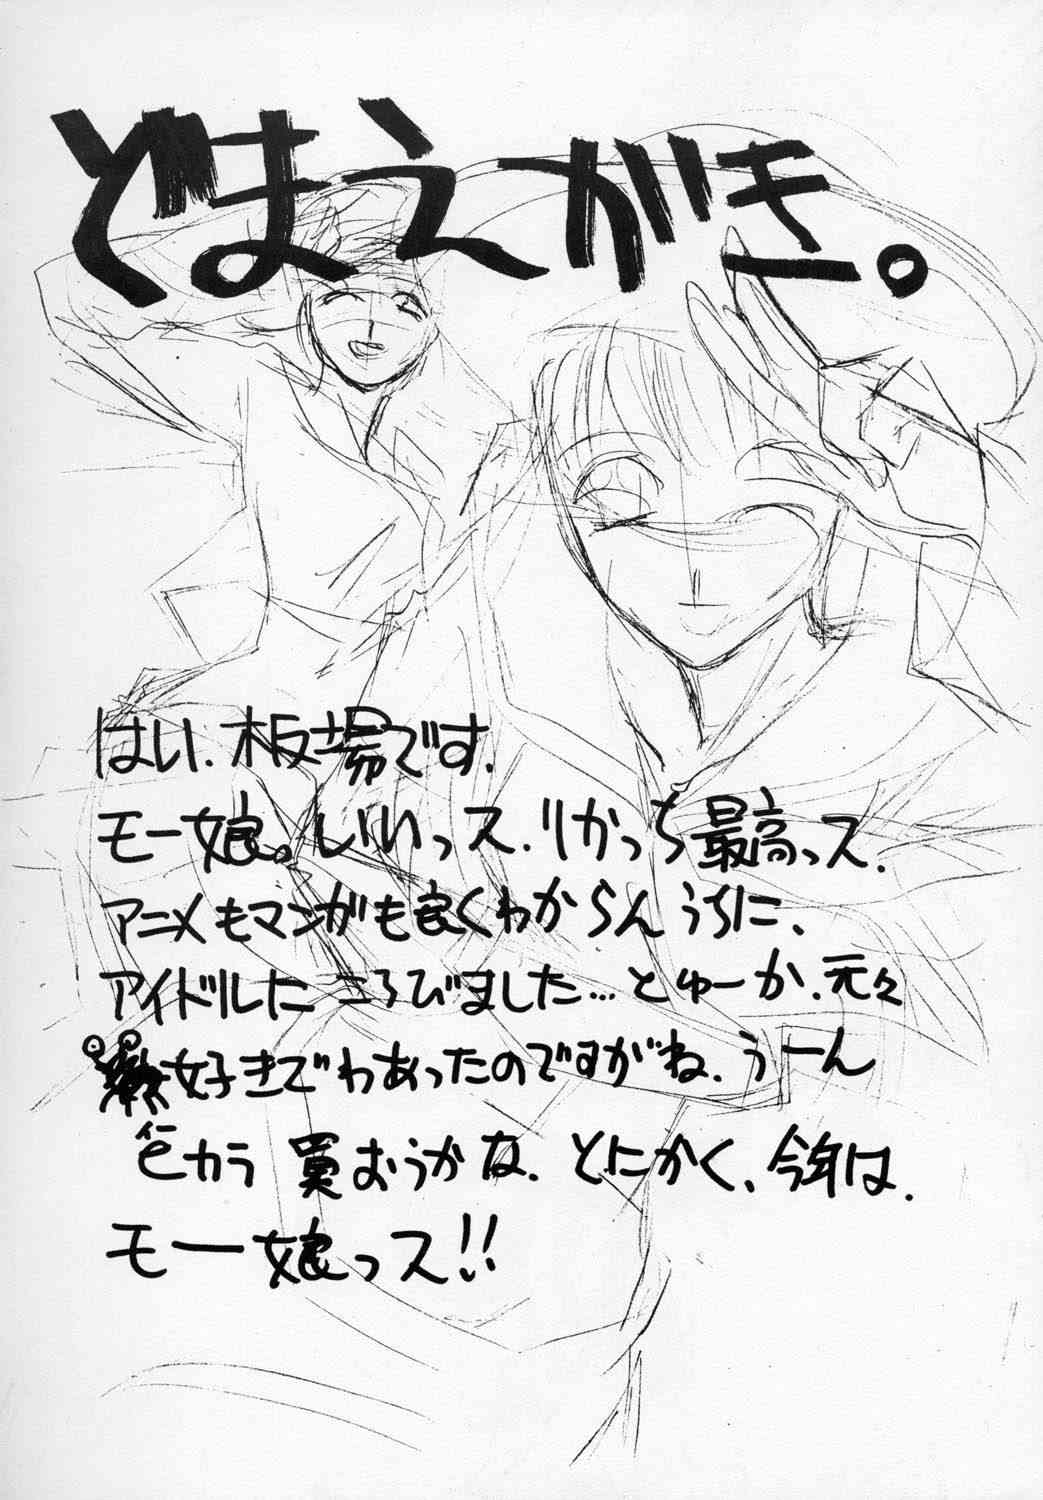 どまえがき。
はい、板場です。
モー娘。いいっス。りかっち最高っス。
アニメもマンガも良くわからんうちに、
アイドルにころびました…とゅーか、元々
好きでわあったのですがね。うーん
カラ買おうかな。とにかく、今年は、
モー娘っス!!